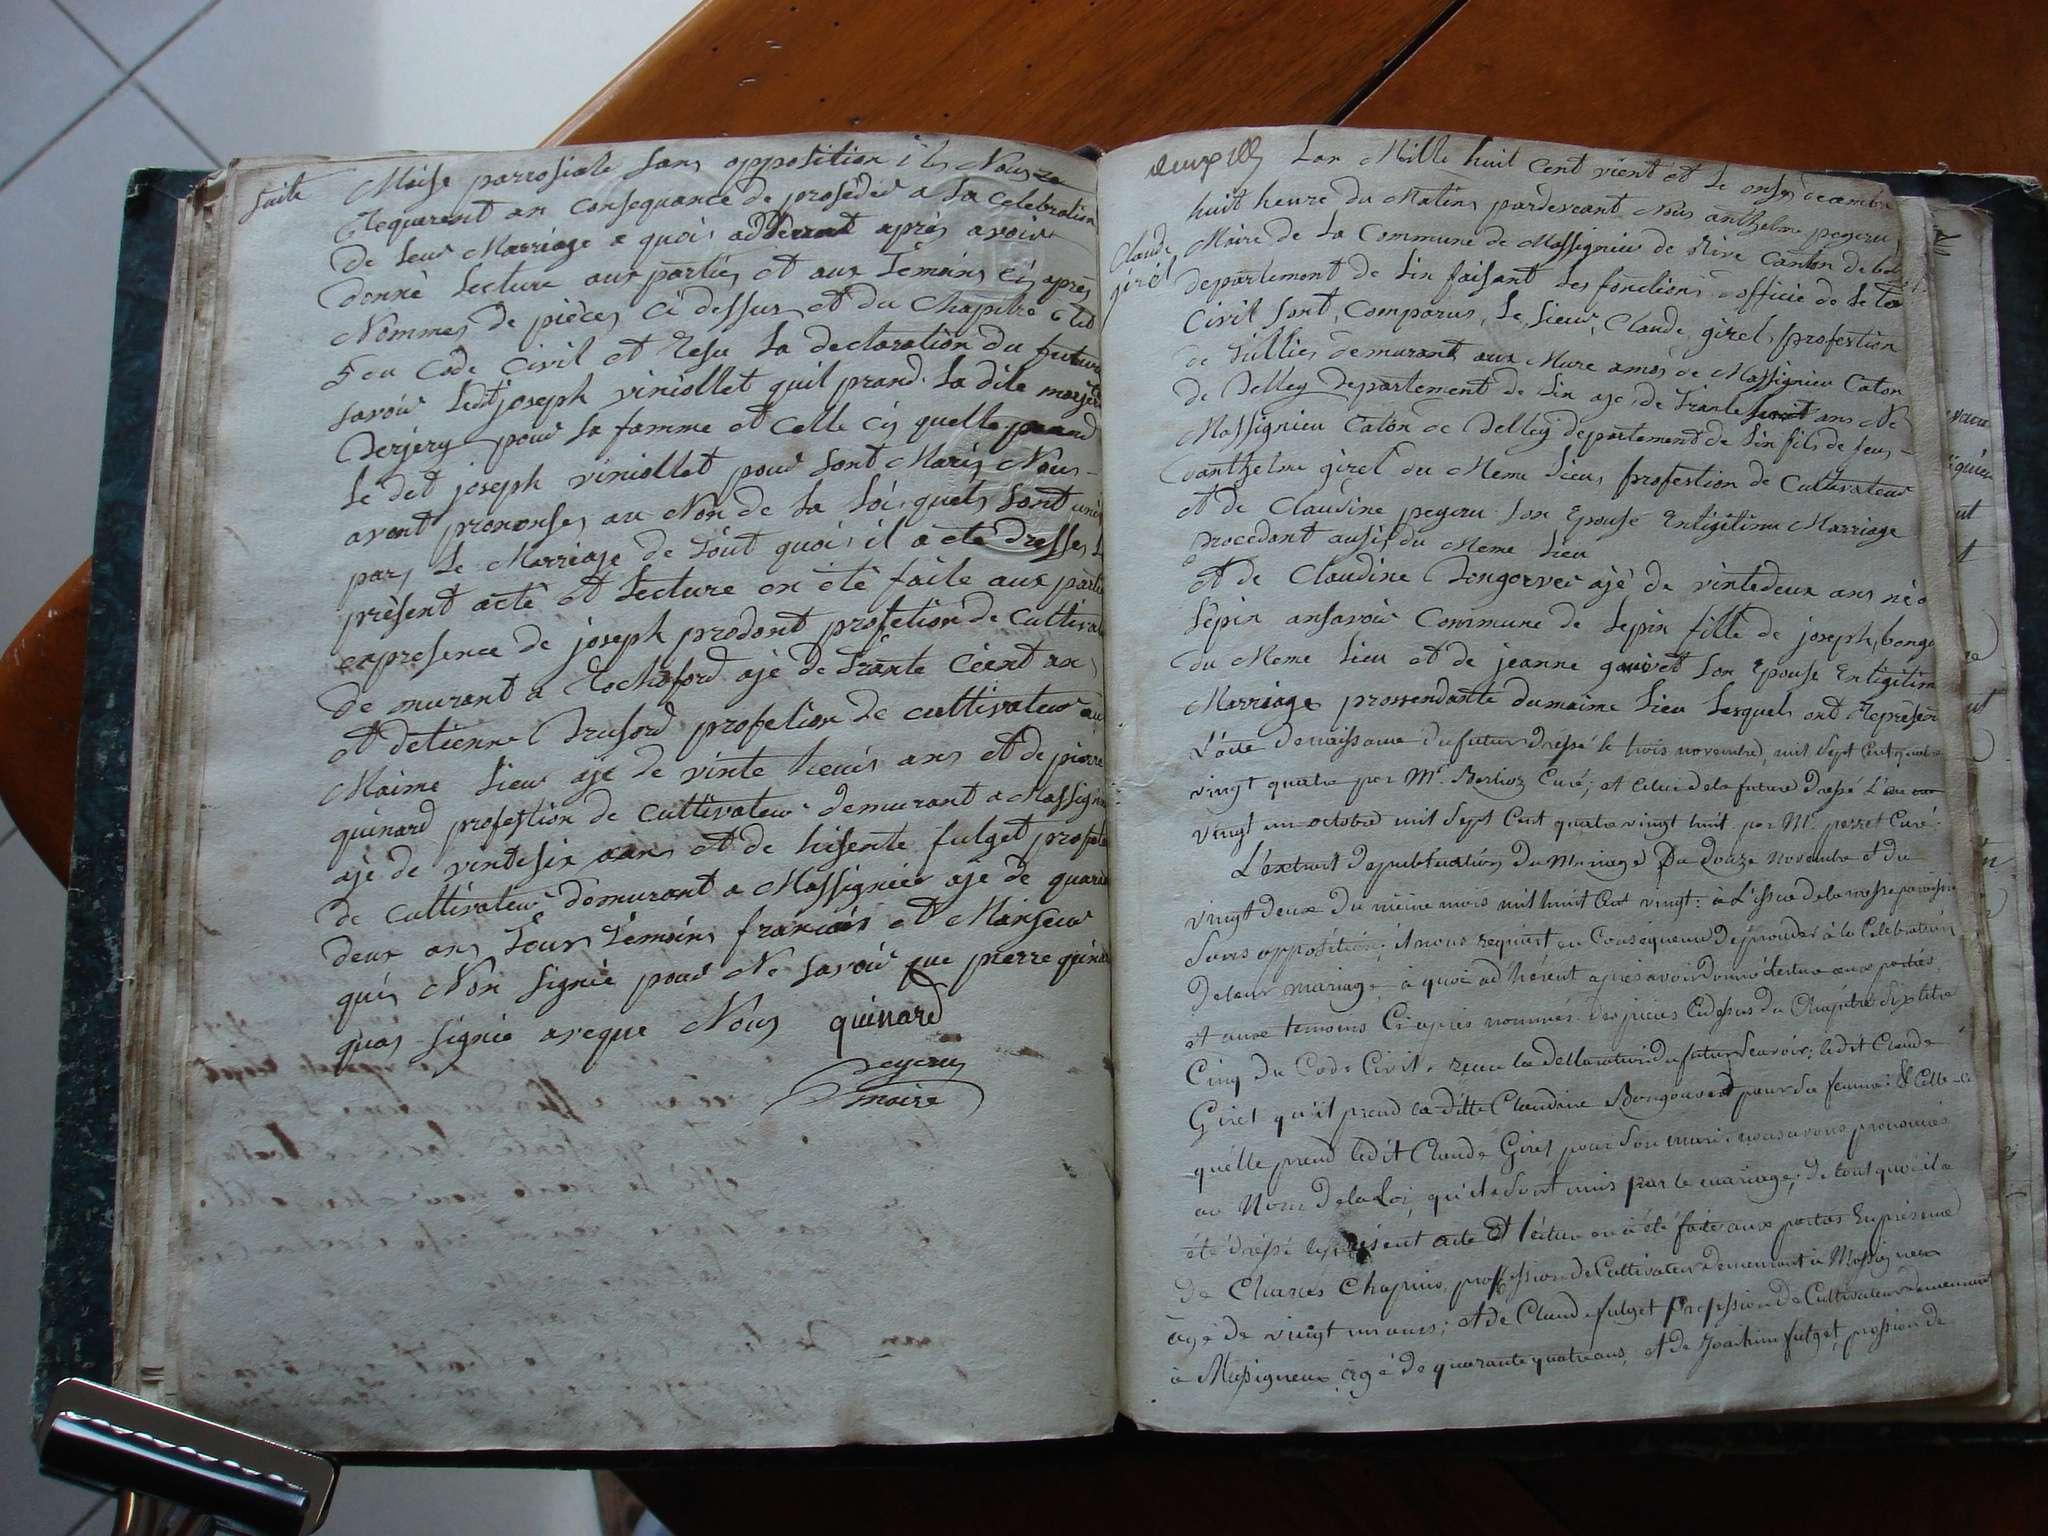 suite
Mèse parrosiale sans opposition ils Nous
Requerent an consequance de prosédér a la celebration
de leur Marriage a quoi adderant après avoir
donné Lecture aux parties et aux Témoins ci après
Nommes de pièces ci dessus et du Chapitre 6 tit
5 du Code Civil et resu la declaration du futur
savoir ledit joseph viniollet quil prand la dite
pour sa famme et celle ci quelle prand
Le dit joseph viniollet pour sont Maris Nous
avont prononses au Non de la Loi quels sont unis
par le Marriage de Tout quoi il a été dresses Le
présent acte et Lecture en été faite aux parties
enpresence de joseph prodont profetion de Cultiva
de murant a Rochoford ajé de Trante Cient an
et détienne profetion de cultivateur au
Maime Lieu ajé de vinte heuis ans et de pierre
quinard profestion de Cultivateur demurant a Massign
ajé de vintesix ans et de fulget profet
de Cultivateur demurant a Massignieu ajé de quaran
deux ans Tous Témoins francais et Mainseur
quis Non signié pour Ne savoir que pierre quina
quas signié aveque Nous quinard
peyeru
maire
Lan Mille huit Cent vient et le onse decembre
huit heure du Matin pardeveant Nous anthelme peyeru
Claude
girel
Maire de la Commune de Massignieu de Rive Canton de bel
departement de Lin faisant les fonctions officie de Le ta
Civil sont Comparus Le sieur Claude girel profestion
de Tullier demurant aux Mure amos de Massignieu Caton
de Belley Departement de Lin aje de Trante ans Ne
Massignieu Caton de Belley departement de Lin fils de feus
anthelme girel du Meme Lieu profestion de Cultivateur
et de Claudine peyeru son Epouse Entigitime Marriage
procedant ausis du Meme Lieu
et de Claudine Bongorver ajé de vintedeux ans né a
Lépin ansavoir Commune de Lepin fille de joseph bongo
du Meme Lieu et de jeanne gouvet son Epouse Entigitim
Marriage prossendante dumaime Lieu Lesquels ont Représen
L'acte de naissance du futur dressé le trois novembre mil sept cent quatre
vingt quatre par Mr Berlioz Curé; et celui de la future Dressé L'
vingt un octobre mil sept Cent quatre vingt huit par Mr perret Curé.
L'extrait de publication du Mariage Du douze novembre et du
vingt Deux Du même mois mil huit Cent vingt: à L'issue de la messe paroissia
sans opposition; il nous requiert en Conséquence De procéder à la Célébration
de leur mariage, à quoi adhérent après avoir donné lecture aux parties
et aux temoins Ci après nommés des pièces Cidessus du Chapitre Six titre
Cinq du Code Civil, reçu la déllaration du futur Savoir; ledit Claude
Girel qu'il prend la ditte Claudine Bongouvert pour sa femme; & Celle-ci
qu'elle prend ledit Claude Girel pour Son mari: nous avons prononcés
au Nom de la Loi, qu'ils Sont unis par le mariage; de tout quoi il a
été dréssé le présent acte Et lecture en a été faite aux parties En présence
de Charles Chapuis, profession de Cultivateur demeurant à Massigneux
âgé de vingt un ans; et de Claude fulget profession de Cultivateur demeurant
à Massigneux âgé de quarante quatre ans, et de Joachim fulget, profession de